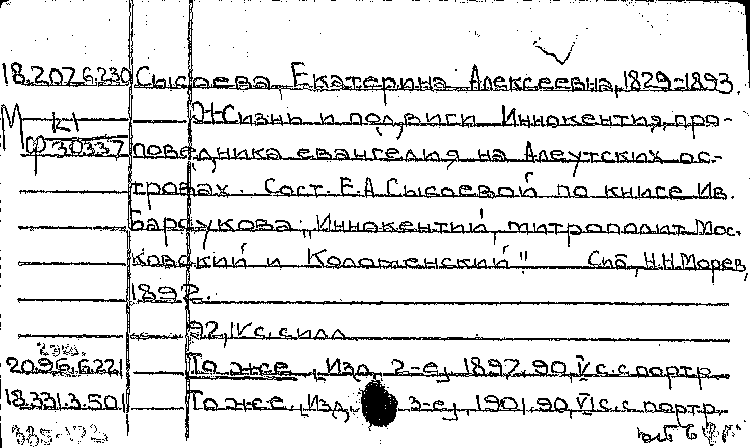 18.207.6.230 Сысоева, Екатерина Алексеевна, 1829-1893.
Жизнь и подвиги Иннокентия, про-
М к1
ф 30337 поведника евангелия на Алеутских ос-
тровах. Сост. Е.А Сысоевой по книге Ив.
Барсукова: „Иннокентий, митрополит Мос.
ковский и Коломенский" Спб, Н.Н.Морев,
1892.
92, IV с. с илл
2 экз.
20.96.6.221 То же , Изд. 2-е, 1897. 90, V с. с портр
18.331.3.501 То же. , Изд. 3-е, 1901. 90, VI с. с. портр.